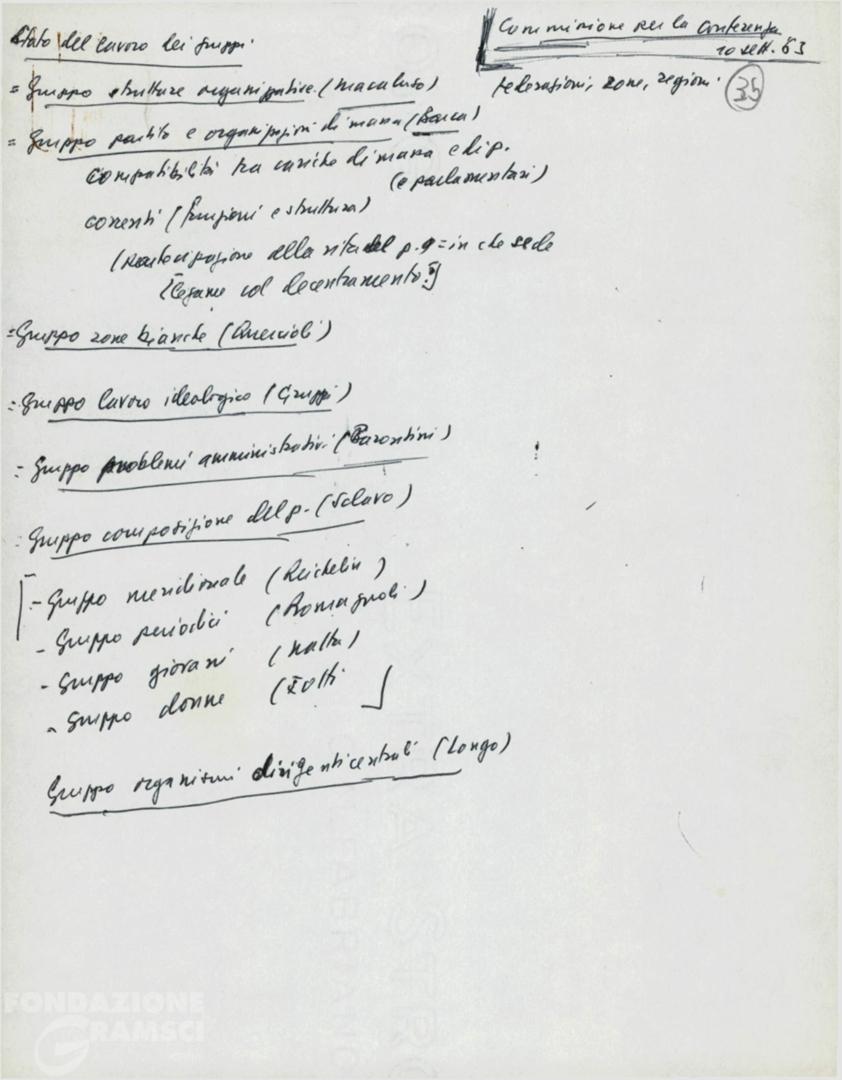 Commissione per la Conferenza
10 sett. 63
Stato del lavoro dei gruppi
= Gruppo strutture organizzative (Macaluso) federazioni, zone, regioni.
35
= Gruppo partito e organizzazioni di massa (Barca)
compatibilità tra cariche di massa e di p.
(e parlamentari)
correnti (funzioni e struttura)
(partecipazione alla vita del p. = in che sede
[legame col decentramento?]
= Gruppo zone bianche (Quercioli)
= Gruppo lavoro ideologico (Gruppi)
= Gruppo problemi amministrativi (Barontini)
= Gruppo composizione del p. (Sclavo)
[- Gruppo meridionale (Reichlin)
- Gruppo periodici (Romagnoli)
- Gruppo giovani (Natta)
- Gruppo donne (Iotti ]
Gruppo organismi dirigenti centrali (Longo)
FONDAZIONE
GRAMSCI